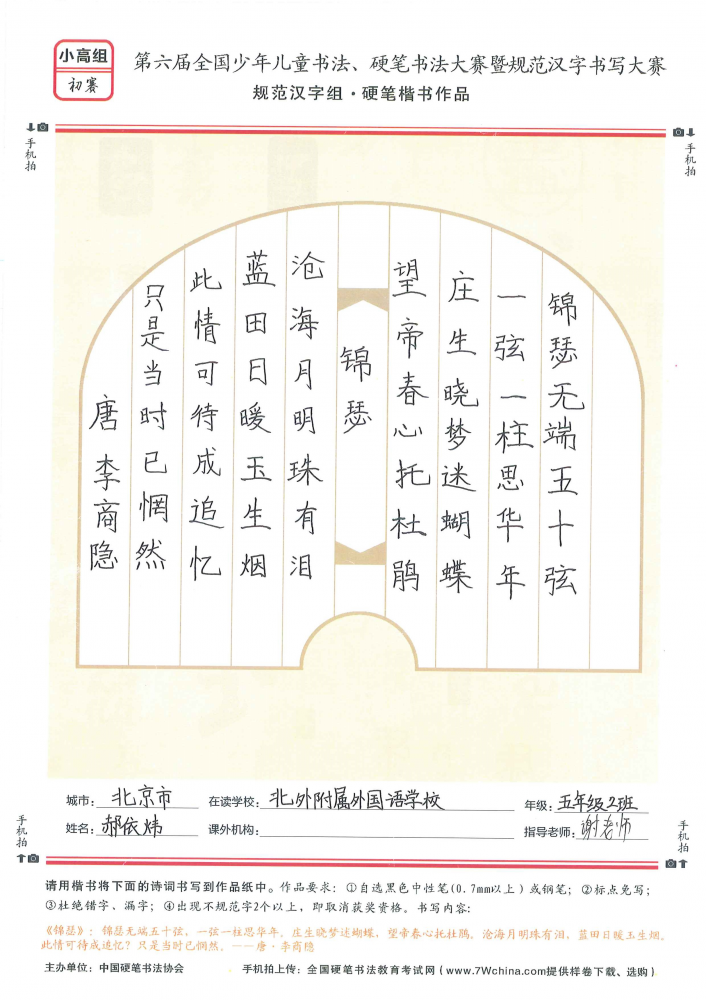 小高组
初赛
第六届全国少年儿童书法、硬笔书法大赛暨规范汉字书写大赛
规范汉字组·硬笔楷书作品
手机拍
手机拍
锦瑟无端五十弦
一弦一柱思华年
庄生晓梦迷蝴蝶
望帝春心托杜鹃
锦瑟
沧海月明珠有泪
蓝田日暖玉生烟
此情可待成追忆
只是当时已惘然
唐 李商隐
城市：北京市 在读学校：北外附属外国语学校 年级：五年级2班
姓名：郝依炜 课外机构： 指导老师：谢老师
手机拍
手机拍
请用楷书将下面的诗词书写到作品纸中。作品要求：①自选黑色中性笔(0.7mm以上)或钢笔；②标点免写；
③杜绝错字、漏字；④出现不规范字2个以上，即取消获奖资格。书写内容：
《锦瑟》：锦瑟无端五十弦，一弦一柱思华年。庄生晓梦迷蝴蝶，望帝春心托杜鹃。沧海月明珠有泪，蓝田日暖玉生烟。
此情可待成追忆？只是当时已惘然。——唐·李商隐
主办单位：中国硬笔书法协会 手机拍上传：全国硬笔书法教育考试网（www.7Wchina.com提供样卷下载、选购）